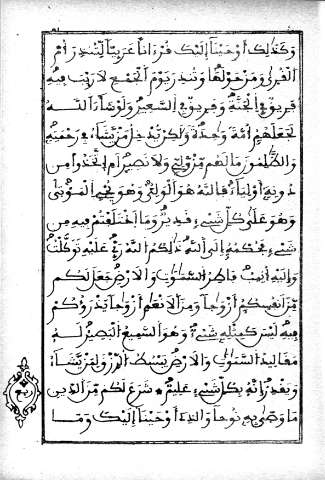 وَكَذَٰلِكَ أَوْحَيْنَا إِلَيْكَ قُرْءَانًا عَرَبِيًّا لِّتُنذِرَ أُمَّ
ٱلْقُرَىٰ وَمَنْ حَوْلَهَا وَتُنذِرَ يَوْمَ ٱلْجَمْعِ لَا رَيْبَ فِيهِ
فَرِيقٌ فِي ٱلْجَنَّةِ وَفَرِيقٌ فِي ٱلسَّعِيرِ وَلَوْ شَاءَ ٱللَّهُ
لَجَعَلَهُمْ أُمَّةً وَٰحِدَةً وَلَٰكِن يُدْخِلُ مَن يَشَاءُ فِي رَحْمَتِهِ
وَٱلظَّٰلِمُونَ مَا لَهُم مِّن وَلِيٍّ وَلَا نَصِيرٍ أَمِ ٱتَّخَذُوا مِن
دُونِهِ أَوْلِيَاءَ فَٱللَّهُ هُوَ ٱلْوَلِيُّ وَهُوَ يُحْيِ ٱلْمَوْتَىٰ
وَهُوَ عَلَىٰ كُلِّ شَيْءٍ قَدِيرٌ وَمَا ٱخْتَلَفْتُمْ فِيهِ مِن
شَيْءٍ فَحُكْمُهُ إِلَى ٱللَّهِ ذَٰلِكُمُ ٱللَّهُ رَبِّي عَلَيْهِ تَوَكَّلْتُ
وَإِلَيْهِ أُنِيبُ فَاطِرُ ٱلسَّمَٰوَٰتِ وَٱلْأَرْضِ جَعَلَ لَكُم
مِّنْ أَنفُسِكُمْ أَزْوَٰجًا وَمِنَ ٱلْأَنْعَٰمِ أَزْوَٰجًا يَذْرَؤُكُمْ
فِيهِ لَيْسَ كَمِثْلِهِ شَيْءٌ وَهُوَ ٱلسَّمِيعُ ٱلْبَصِيرُ لَهُ
مَقَالِيدُ ٱلسَّمَٰوَٰتِ وَٱلْأَرْضِ يَبْسُطُ ٱلرِّزْقَ لِمَن يَشَاءُ
وَيَقْدِرُ إِنَّهُ بِكُلِّ شَيْءٍ عَلِيمٌ شَرَعَ لَكُم مِّنَ ٱلدِّينِ
مَا وَصَّىٰ بِهِ نُوحًا وَٱلَّذِي أَوْحَيْنَا إِلَيْكَ وَمَا
ربع